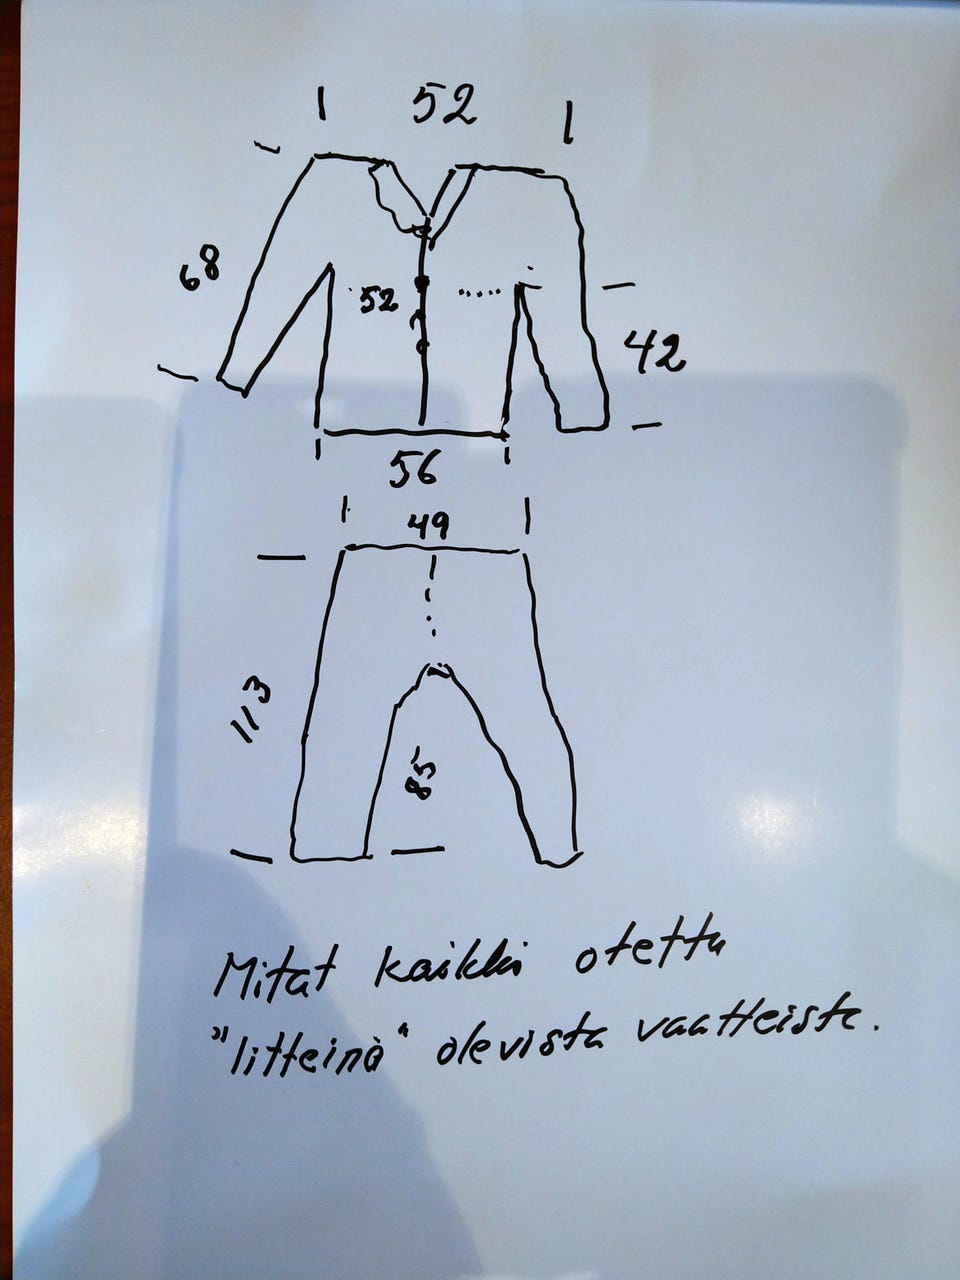 52
68
52
42
56
49
113
85
Mitat kaikki otettu
"litteinä" olevista vaatteista.